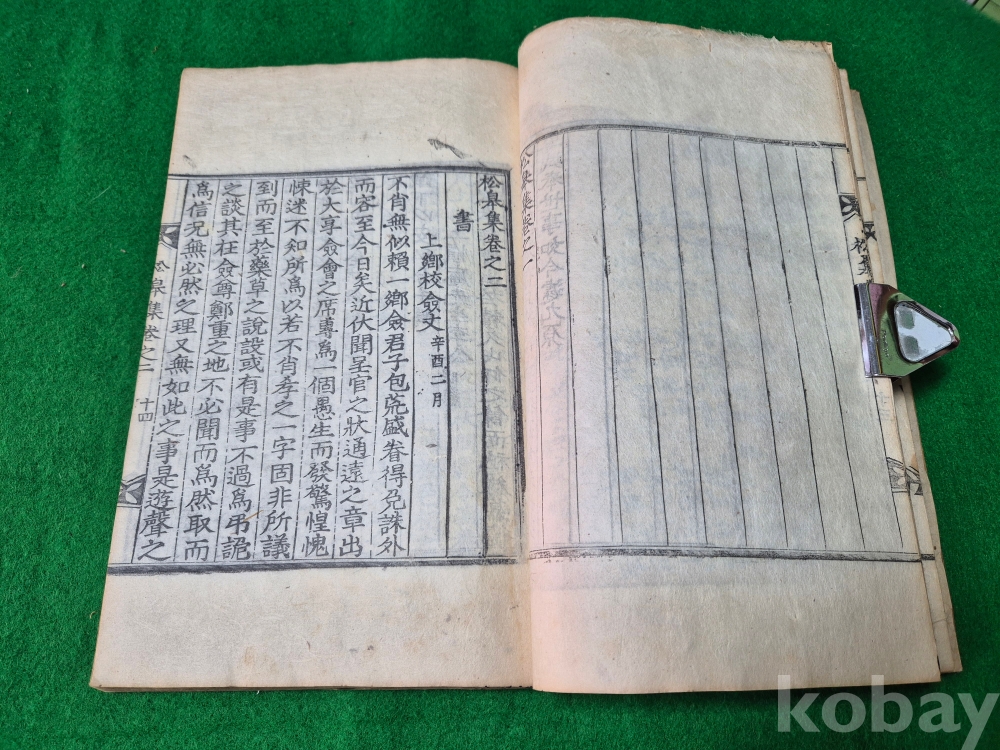 松皐集卷之一
松皐集卷之二
書
上鄉校僉丈 辛酉二月
不肖無似賴一鄉僉君子包荒盛眷得免誅外
而容至今日矣近伏聞呈官之狀通遠之章出
於大享僉會之席專爲一個愚生而發驚惶愧
悚迷不知所爲以若不肖孝之一字固非所議
到而至於藥草之說設或有是事不過爲弔詭
之談其在僉尊鄭重之地不必聞而爲然取而
爲信况無必然之理又無如此之事是遊聲之
松皐集卷之二
十四
kobay